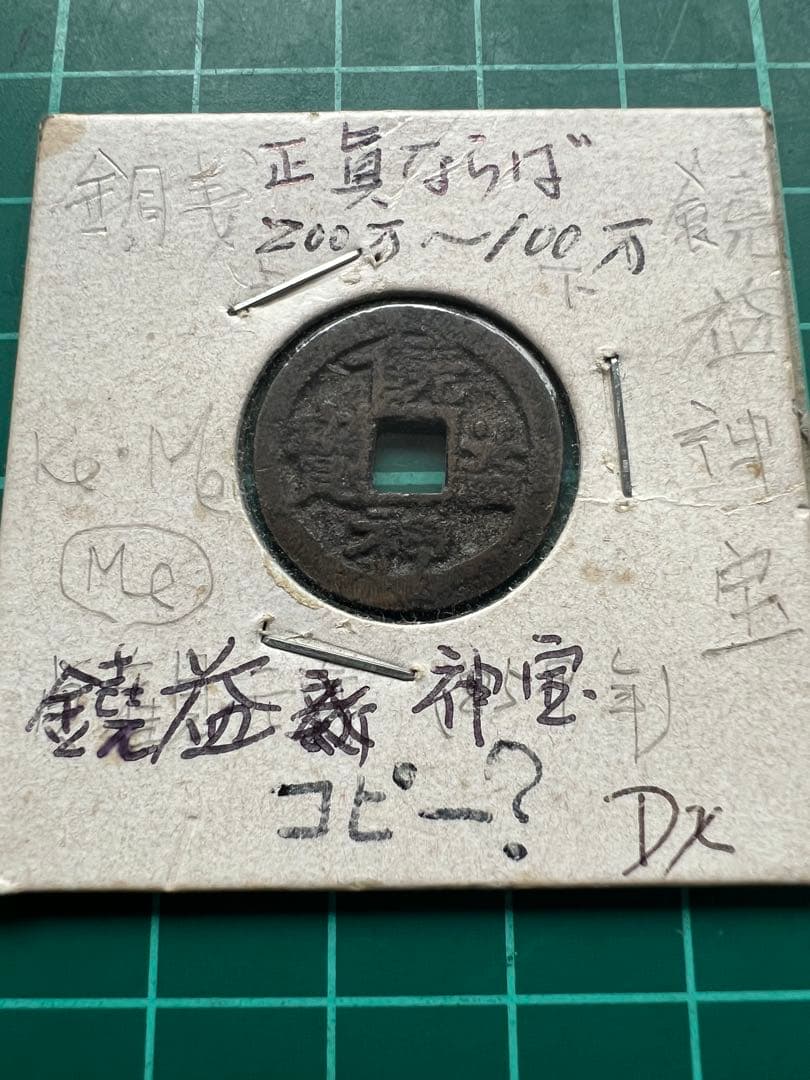 銅
正眞ならば
200万〜100万
下
饒
益
神
宝
Ke・Me
Me
饒益 神宝
年)
コピー?
Dx
饒益神寳